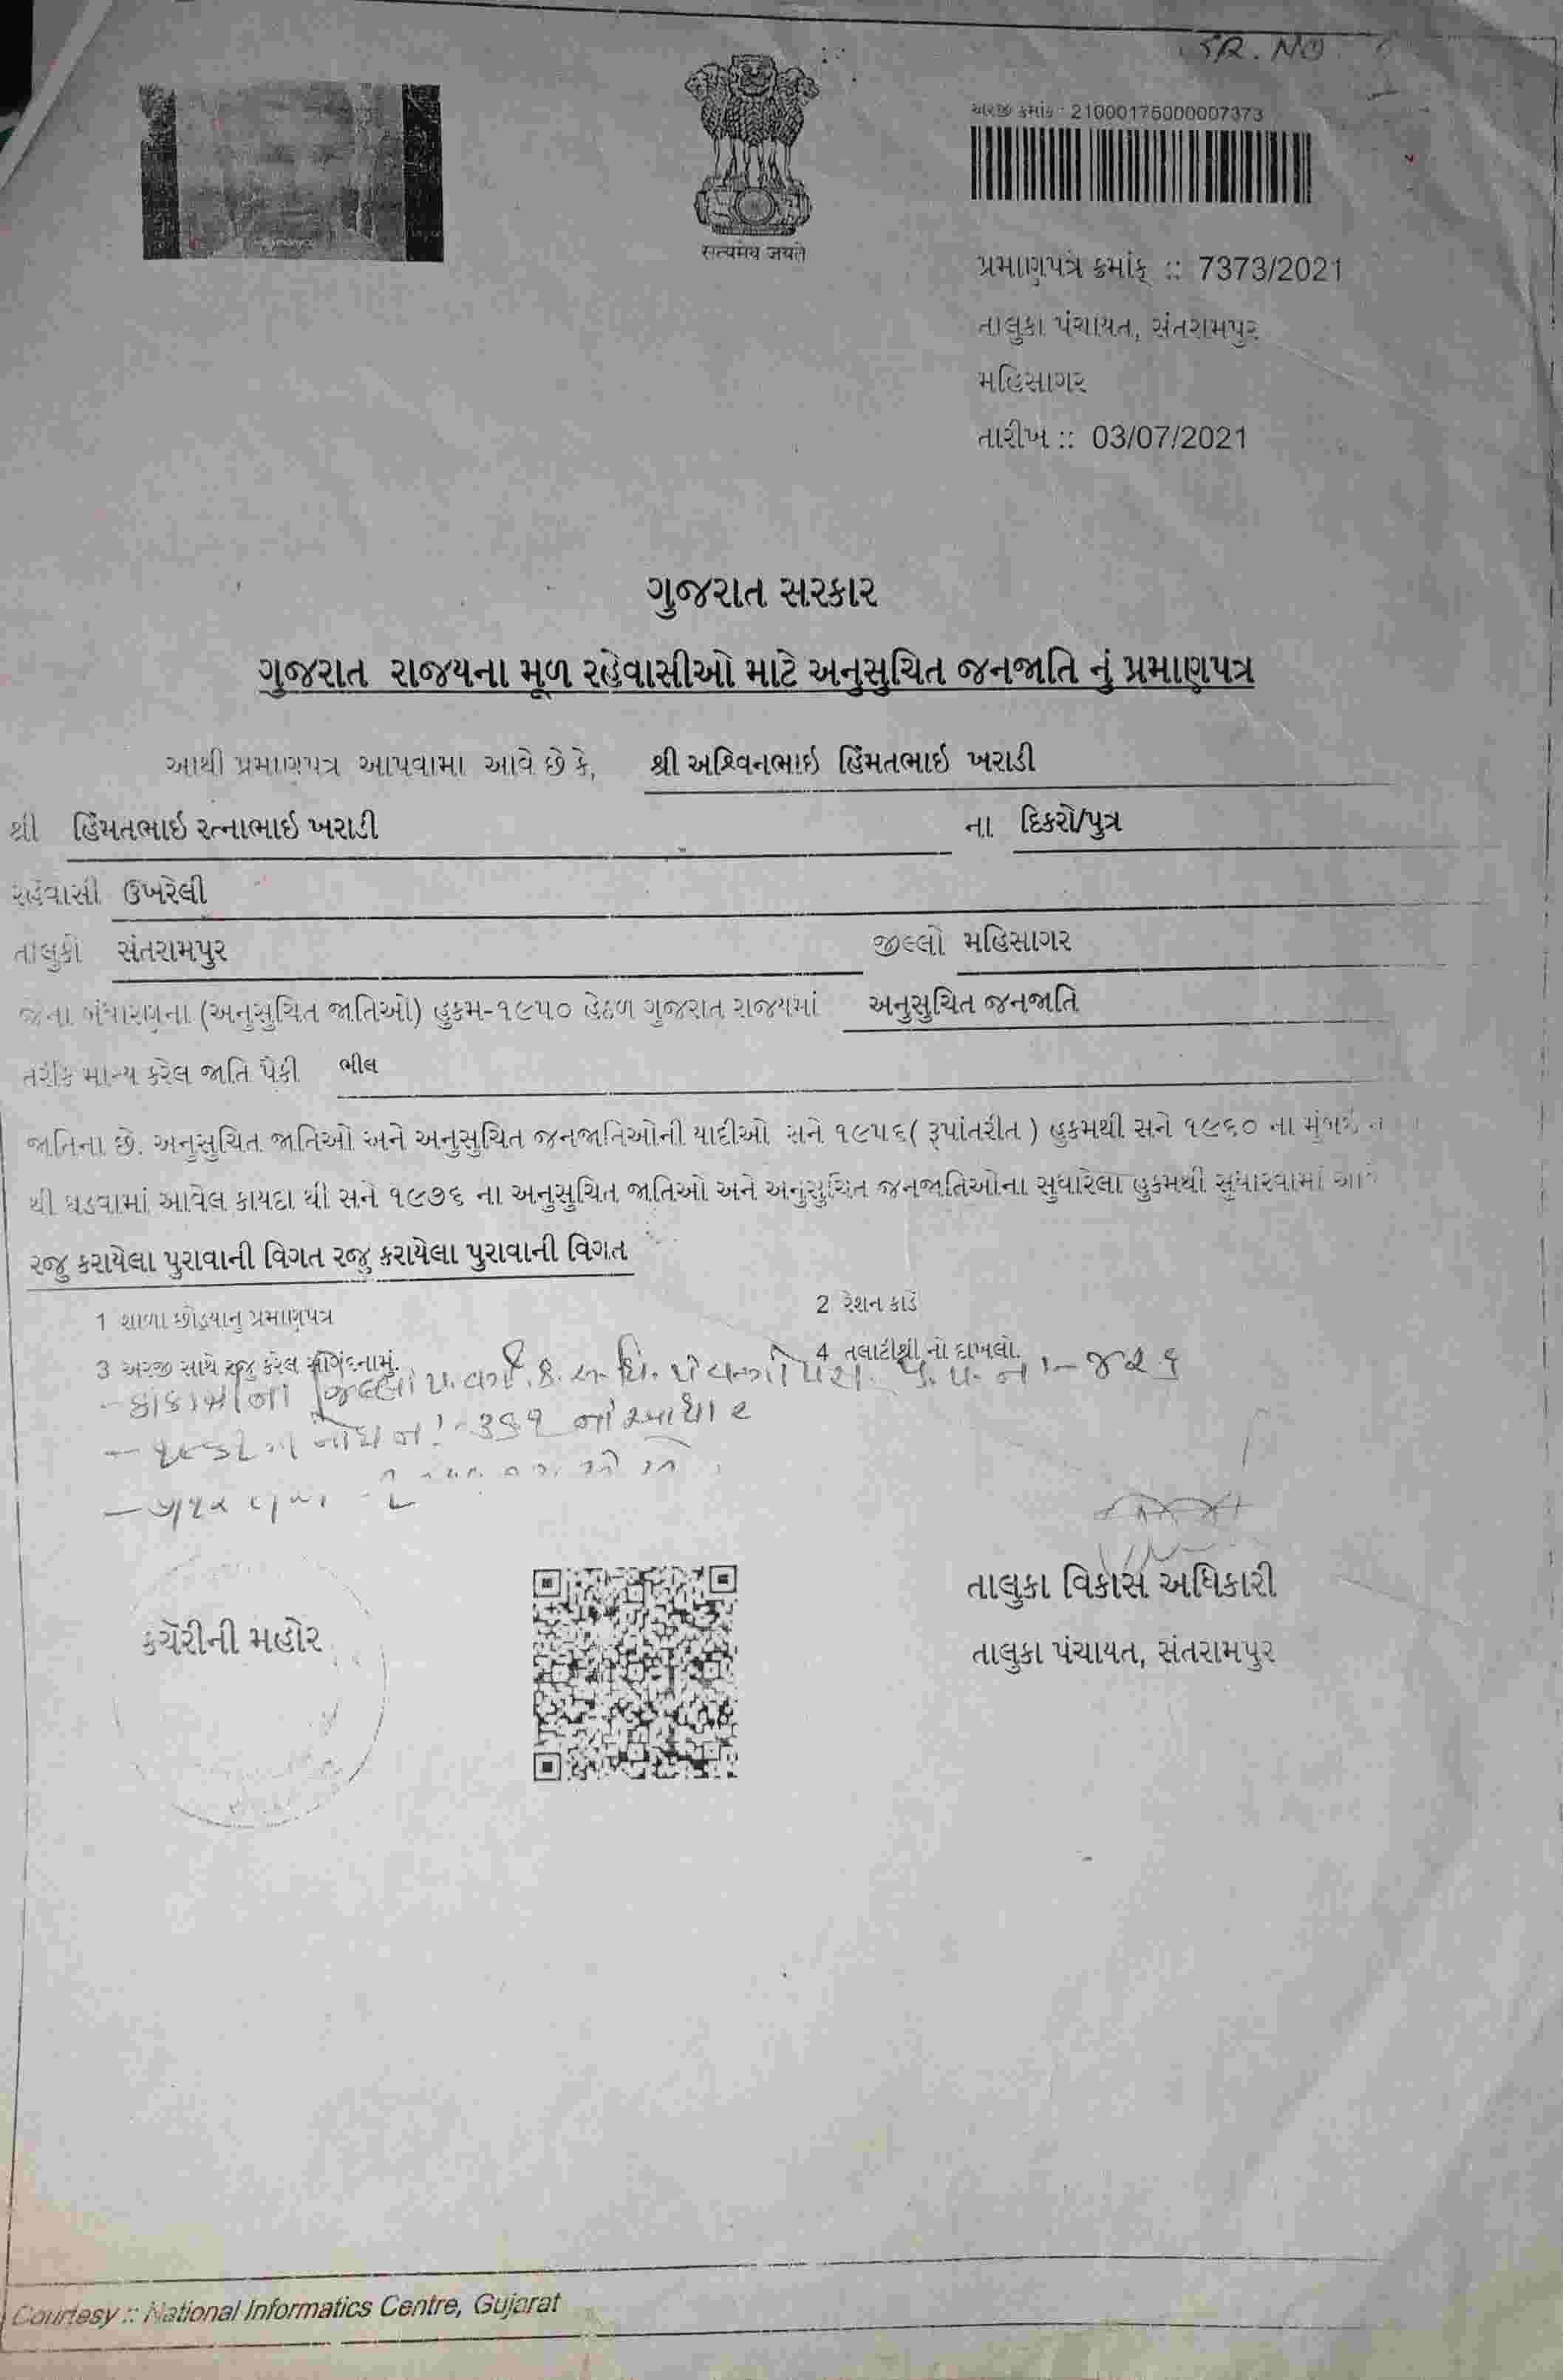 SR. NO
અરજી ક્રમાંક : 21000175000007373
सत्यमेव जयते
પ્રમાણપત્ર ક્રમાંક :: 7373/2021
તાલુકા પંચાયત, સંતરામપુર
મહિસાગર
તારીખ :: 03/07/2021
ગુજરાત સરકાર
ગુજરાત રાજયના મૂળ રહેવાસીઓ માટે અનુસુચિત જનજાતિ નું પ્રમાણપત્ર
આથી પ્રમાણપત્ર આપવામા આવે છે કે, શ્રી અશ્વિનભાઇ હિંમતભાઇ ખરાડી
શ્રી હિંમતભાઇ રત્નાભાઇ ખરાડી ના દિકરો/પુત્ર
રહેવાસી ઉખરેલી
તાલુકો સંતરામપુર જીલ્લો મહિસાગર
જેના બંધારણના (અનુસુચિત જાતિઓ) હુકમ-૧૯૫૦ હેઠળ ગુજરાત રાજયમાં અનુસુચિત જનજાતિ
તરીકે માન્ય કરેલ જાતિ પૈકી ભીલ
જાતિના છે. અનુસુચિત જાતિઓ અને અનુસુચિત જનજાતિઓની યાદીઓ સને ૧૯૫૬( રૂપાંતરીત ) હુકમથી સને ૧૯૬૦ ના મુંબઇ
થી ઘડવામાં આવેલ કાયદા થી સને ૧૯૭૬ ના અનુસુચિત જાતિઓ અને અનુસુચિત જનજાતિઓના સુધારેલા હુકમથી સુધારવામાં
રજુ કરાયેલા પુરાવાની વિગત રજુ કરાયેલા પુરાવાની વિગત
1 શાળા છોડયાનુ પ્રમાણપત્ર 2 રેશન કાર્ડ
3 અરજી સાથે રજુ કરેલ સોગંદનામું. 4 તલાટીશ્રી નો દાખલો.
કચેરીની મહોર
તાલુકા વિકાસ અધિકારી
તાલુકા પંચાયત, સંતરામપુર
Courtesy :: National Informatics Centre, Gujarat